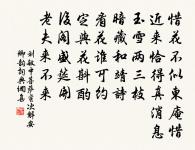 惜花不似東庵惜
近來恰得真消息
玉雪兩三枝
暗藏和靖詩
看花誰可約
定與花斟酌
後閣盛筵開
老夫來不來
劉敏中菩薩蠻次解安
卿韻詞典網集